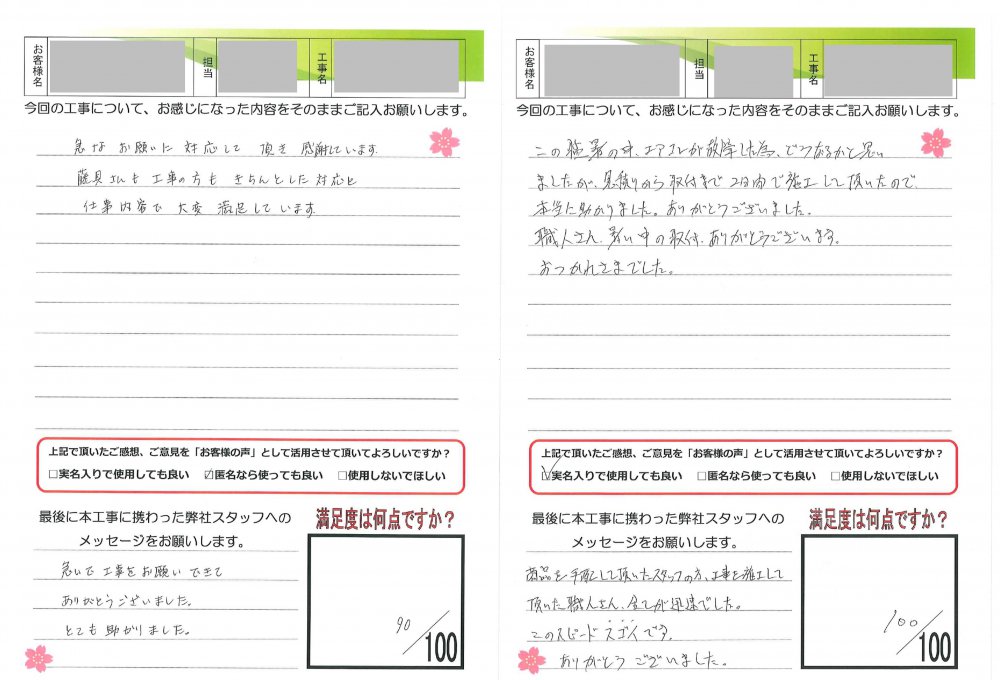 お客様名
担当
工事名
今回の工事について、お感じになった内容をそのままご記入お願いします。
急なお願いに対応して頂き感謝しています
藤具さんも工事の方もきちんとした対応と
仕事内容で大変満足しています
上記で頂いたご感想、ご意見を「お客様の声」として活用させて頂いてよろしいですか？
□実名入りで使用しても良い ☑匿名なら使っても良い □使用しないでほしい
最後に本工事に携わった弊社スタッフへの
メッセージをお願いします。
満足度は何点ですか？
急いで工事をお願いできて
ありがとうございました。
とても助かりました。
90/100
お客様名
担当
工事名
今回の工事について、お感じになった内容をそのままご記入お願いします。
この猛暑の中、エアコンが故障した為、どうなるかと思い
ましたが、見積りから取付まで2日内で施工して頂いたので、
本当に助かりました。ありがとうございました。
職人さん、暑い中の取付、ありがとうございます。
おつかれさまでした。
上記で頂いたご感想、ご意見を「お客様の声」として活用させて頂いてよろしいですか？
☑実名入りで使用しても良い □匿名なら使っても良い □使用しないでほしい
最後に本工事に携わった弊社スタッフへの
メッセージをお願いします。
満足度は何点ですか？
商品を手配して頂いたスタッフの方、工事を施工して
頂いた職人さん、全てが迅速でした。
このスピードスゴイです。
ありがとうございました。
100/100